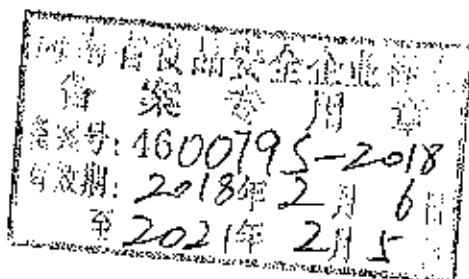 海南省食品安全企业标准
备案专用章
备案号:4600795-2018
有效期:2018年2月6日
至2021年2月5日